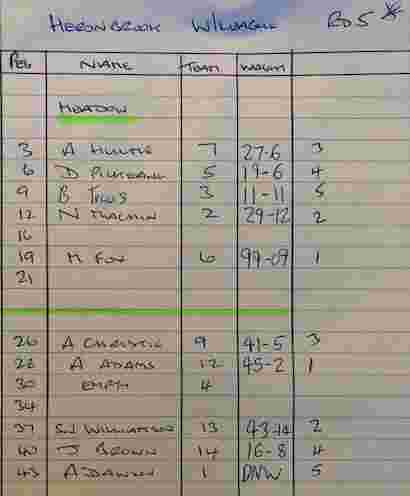 HERONBROOK RD 5 *
PEG NAME TEAM WEIGHT
MEADOW
3 A HULME 7 27-6 3
6 D 5 19-6 4
9 B 3 11-11 5
12 N MACHIN 2 29-12 2
16
19 M FOX 6 99-09 1
21
26 A CHRISTIE 9 41-5 3
A ADAMS 12 45-2 1
30 EMPTY 4
34
37 WILLIAMSON 13 43-14 2
40 J BROWN 14 16-8 4
43 A DAWSON 1 DNW 5